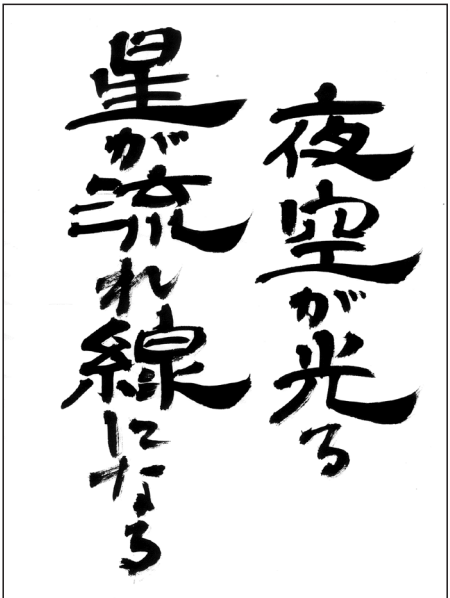 夜空が光る
星が流れ線になる